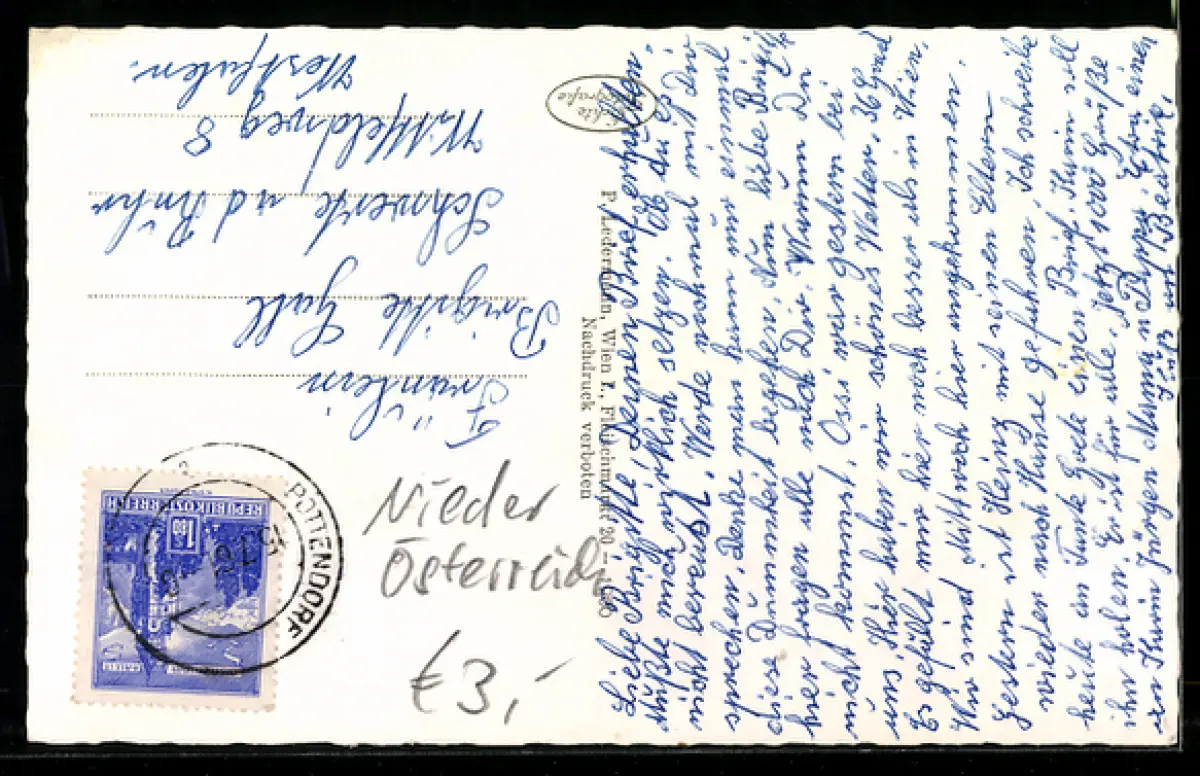 Liebe Brigitte, Deinen Brief erhalten.
Mußte mich wirklich setzen. Ob Du es
nicht bereust. Werde nochmal mit Dir
sprechen. Denke man kann nur einmal
diese Dummheit begehen. Nun liebe Brigitt
hier fragen alle nach Dir. Warum Du
nicht kommst. Ossi war gestern bei
uns. Hier haben wir schönes Wetter. 36 Grad
Es gefällt mir hier noch besser als in Wien.
Wir sind Mittwoch hier angekommen.
Gestern ist Heinz mit seinen Eltern
wieder nach Hause gefahren. Ich schreibe
heute an Tante einen Brief. Ihann soll
ihr holen. Er ist für alle. Jetzt 1000 Grüße
an Jürgen Mama u Pappi. Extra einen
Kuß
Beatrix.
Echte
Fotografie
P. Ledermann, Wien I., Fleischmarkt 20
Nachdruck verboten
Fräulein
Brigitte Gall
Schwerte a/d Ruhr
8
Westfalen.
REPUBLIK ÖSTERREICH
1.80
POTTENDORF
Nieder
Österreich
€3,-